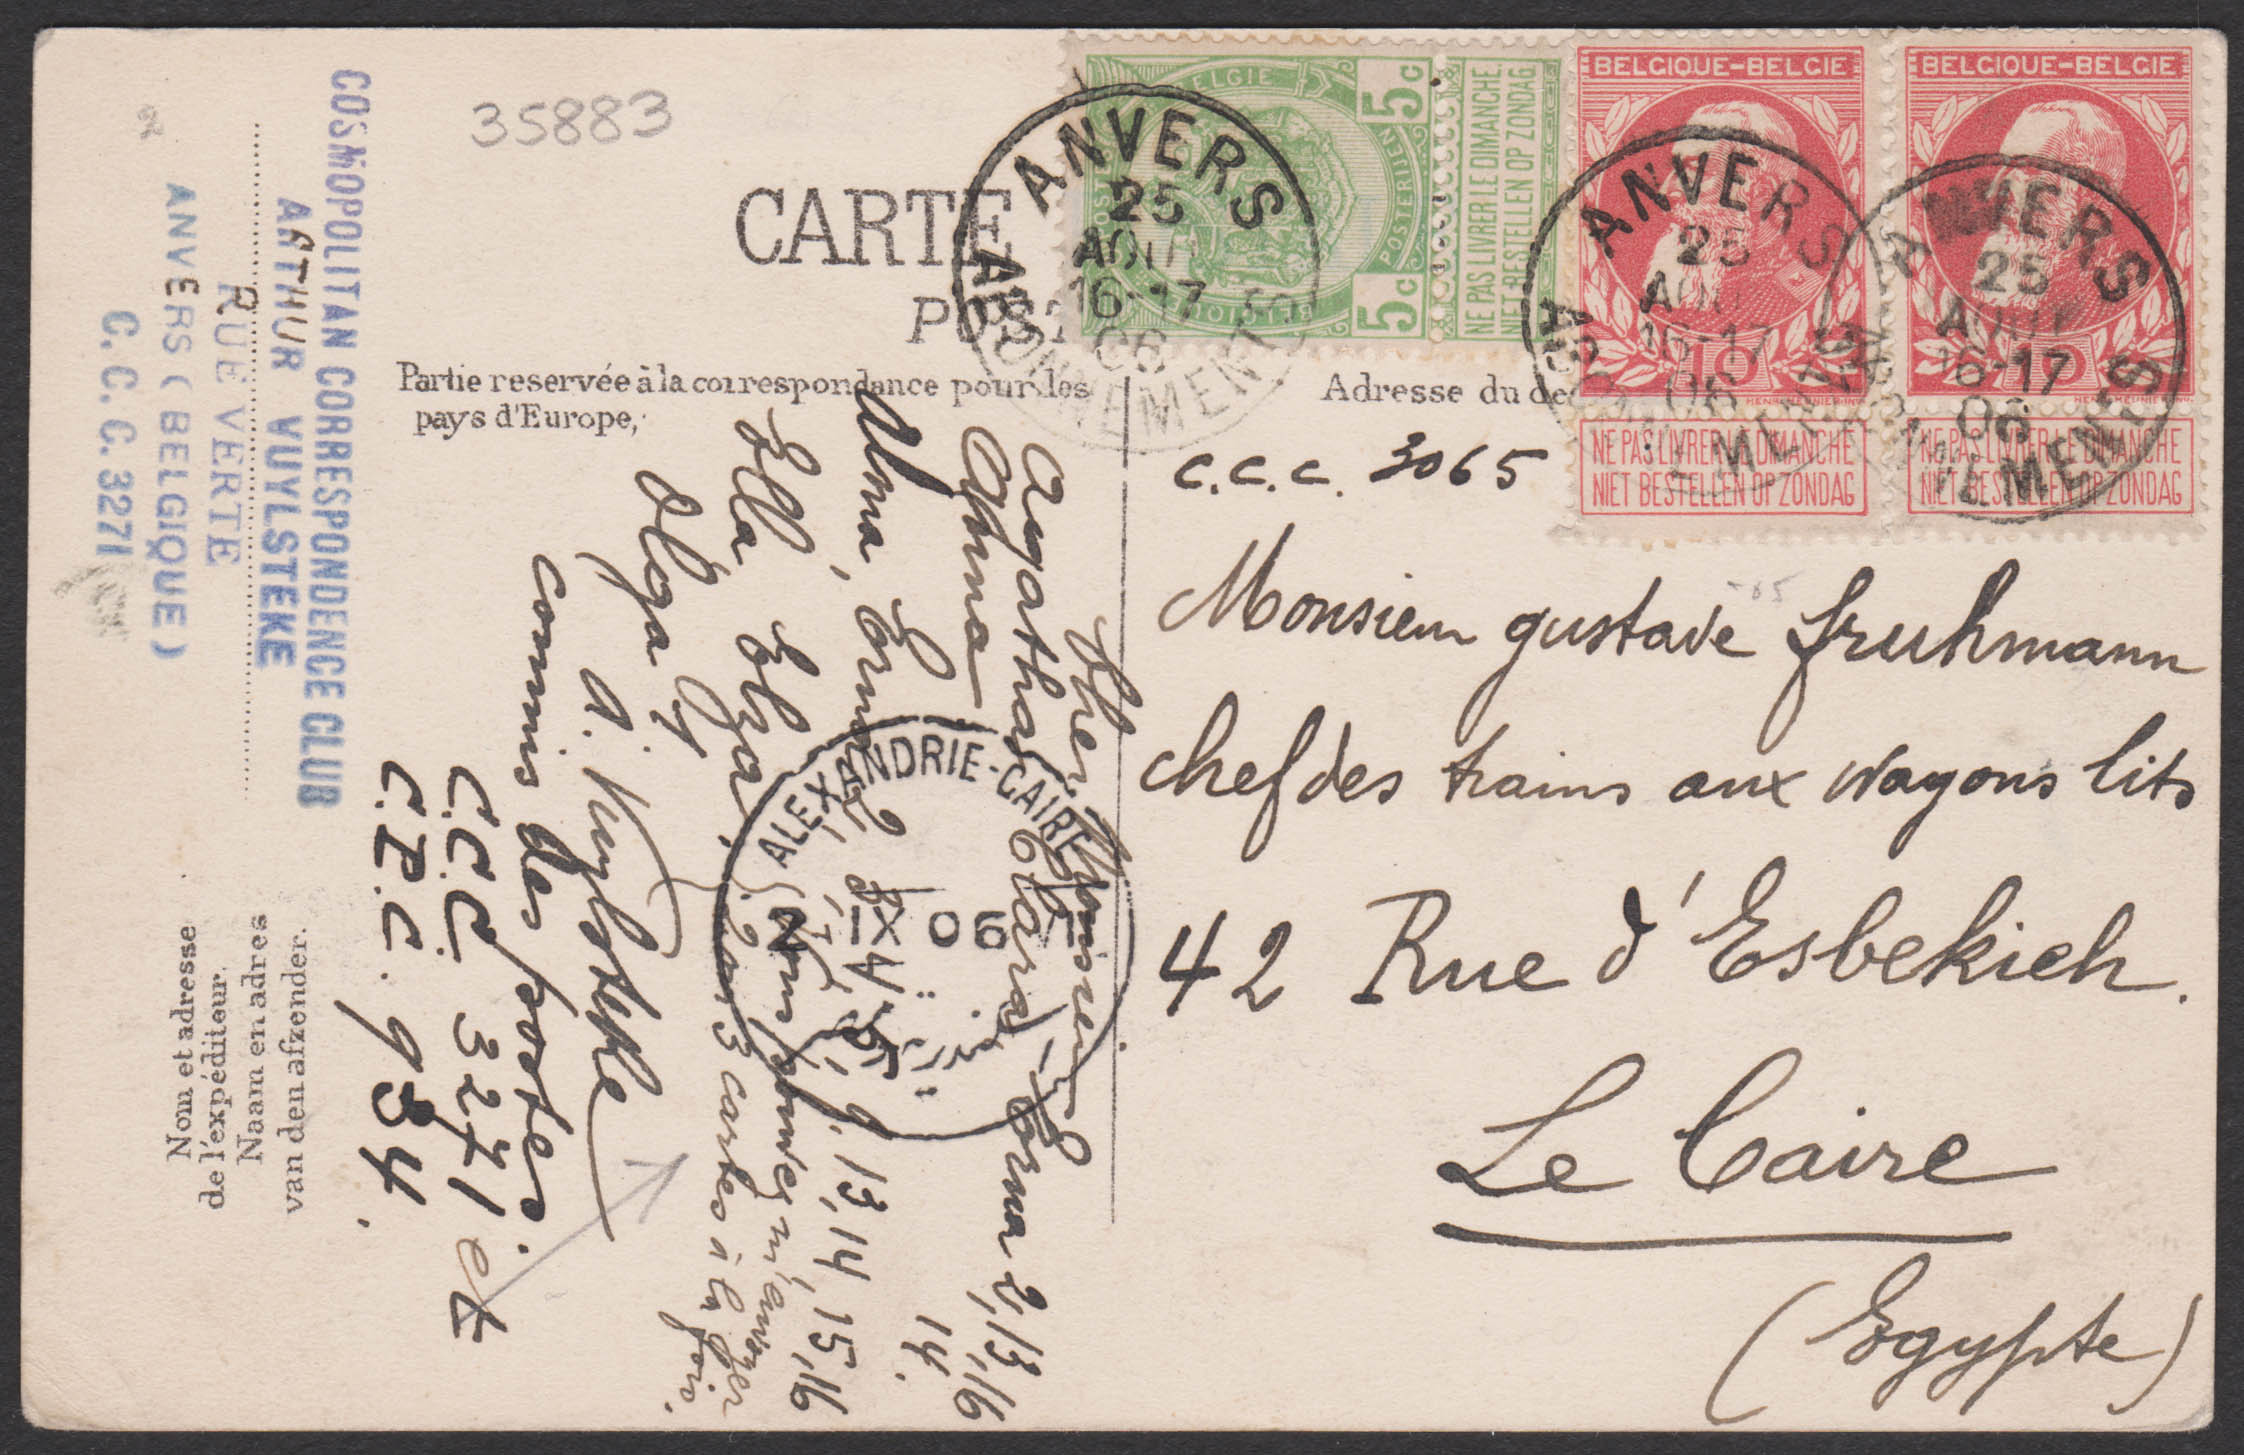 35883
CARTE
Partie reservée à la correspondance pour les
pays d'Europe,
Adresse du
BELGIE
5c
5c
POSTERIJEN
BELGIQUE
NE PAS LIVRER LE DIMANCHE.
NIET BESTELLEN OP ZONDAG
BELGIQUE-BELGIE
10
NE PAS LIVRER LE DIMANCHE
NIET BESTELLEN OP ZONDAG
BELGIQUE-BELGIE
10
NE PAS LIVRER LE DIMANCHE
NIET BESTELLEN OP ZONDAG
ANVERS
25
AOUT
16-17
06
ABONNEMENTS
ANVERS
25
16-17
06
ANVERS
25
AOUT
16-17
06
C.C.C. 3065
Monsieur gustave Fruhmann
chef des trains aux wagons lits
42 Rue d'Esbekieh.
Le Caire
(Egypte)
Cher Monsieur
agathas Clara - Erna 2, 13, 16
Ahna 14.
Alona, Erna 2, 8, 9, 13, 14, 15, 16
Ella Elza, (Vous pouvez m'envoyer
Olga 4 2 ou 3 cartes à la fois.
A. Vuylsteke
commis des postes
C.C.C. 3271 et
C.P.C. 934.
ALEXANDRIE-CAIRE
IX 06
COSMOPOLITAN CORRESPONDENCE CLUB
ARTHUR VUYLSTEKE
RUE VERTE
ANVERS (BELGIQUE)
C. C. C. 3271
Nom et adresse
de l'expéditeur.
Naam en adres
van den afzender.